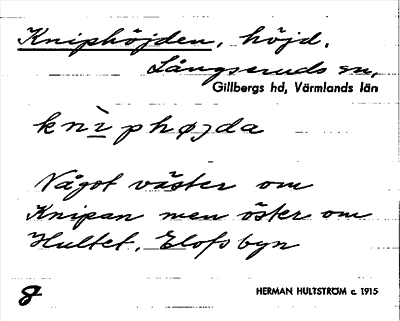 Kniphöjden, höjd.
Långseruds sn,
Gillbergs hd, Värmlands län
knìphøjda
Något väster om
Knipan men öster om
Hultet, Elofsbyn
HERMAN HULTSTRÖM c. 1915